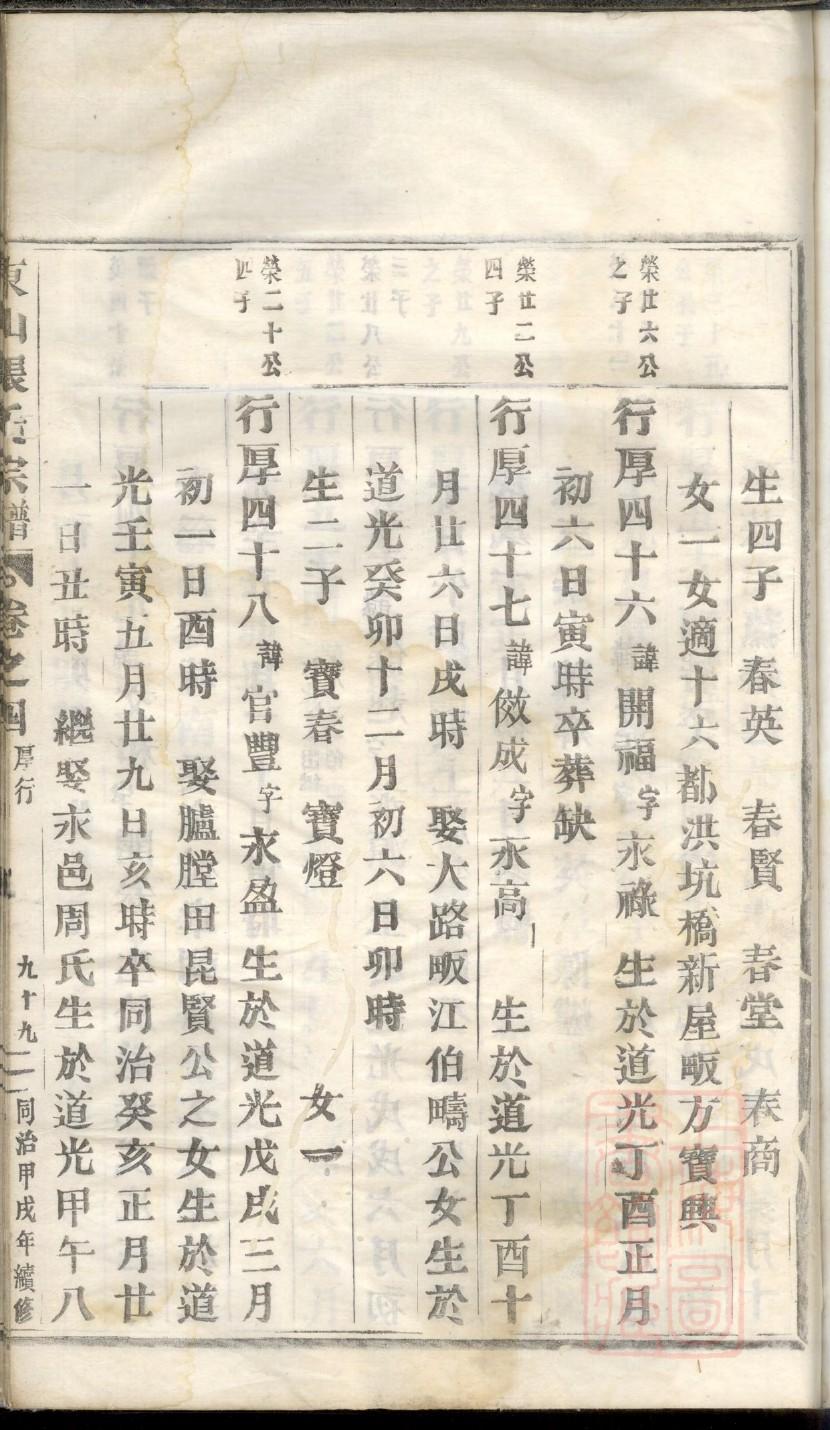 生四子 春英 春賢 春堂 春商
女一女適十六都洪坑橋新屋畈方寶興
榮廿六公
之子
行厚四十六諱開福字永祿生於道光丁酉正月
初六日寅時卒葬缺
榮廿二公
四子
行厚四十七諱傚成字永高 生於道光丁酉十
月廿六日戌時 娶大路畈江伯疇公女生於
道光癸卯十二月初六日卯時
生二子 寶春 寶燈 女一
榮二十公
四子
行厚四十八諱官豐字永盈生於道光戊戌三月
初一日酉時 娶臚膛田昆賢公之女生於道
光壬寅五月廿九日亥時卒同治癸亥正月廿
一日丑時 繼娶永邑周氏生於道光甲午八
東山張氏宗譜 卷之四 厚行 九十九 同治甲戌年續修